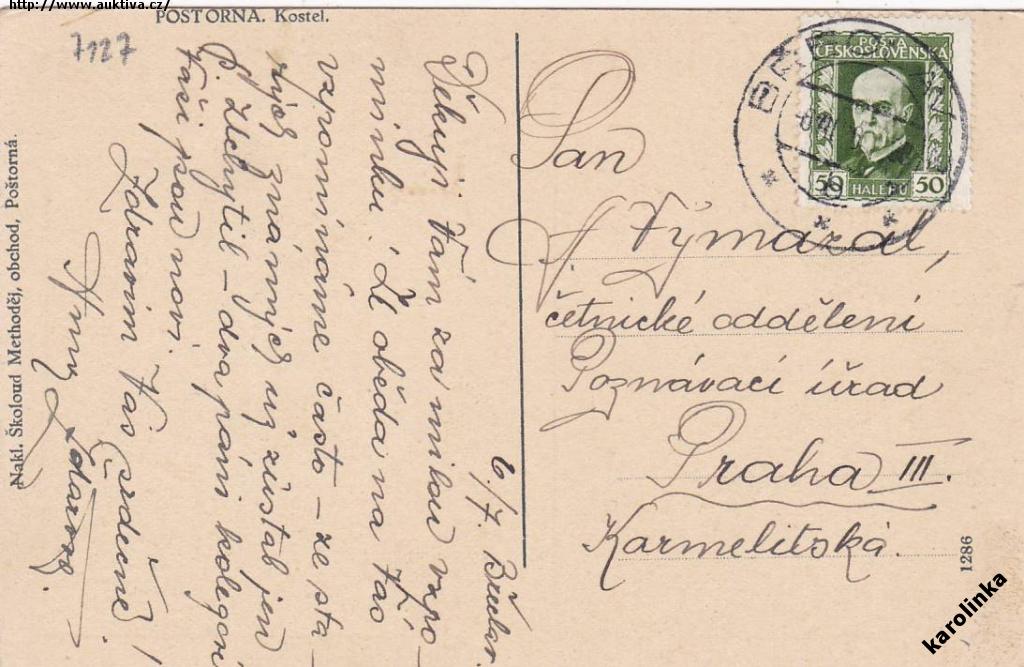 http://www.auktiva.cz/
POŠTORNÁ. Kostel.
7127
Nakl. Školoud Methoděj, obchod, Poštorná
6./7. Břeclav.
Děkuji Vám za milou vzpo-
mínku. Le oběda na Vás
vzpomínáme často – ze sta-
rých známých už zůstal jen
p. Zlchytil – dva páni kolegové
tací jsou noví.
Zdravím Vás srdečně!
POŠTA
ČESKOSLOVENSKÁ
50 HALÉŘŮ 50
Pan
A. Vymazal,
četnické oddělení
Poznávací úřad
Praha III.
Karmelitská.
1286
karolinka